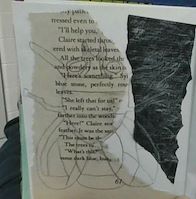 tressed even to
"I'll help you,
Claire started
ered with skeletal leaves
All the trees looked
and powdery as the skin
"Here's something."
blue stone, perfectly
leaves.
"She left that for us!"
"I really can't stay."
farther into the woods
"Here!" Claire
feather. It was the
"This must be
The trees
"What's this?"
some dark blue,
67